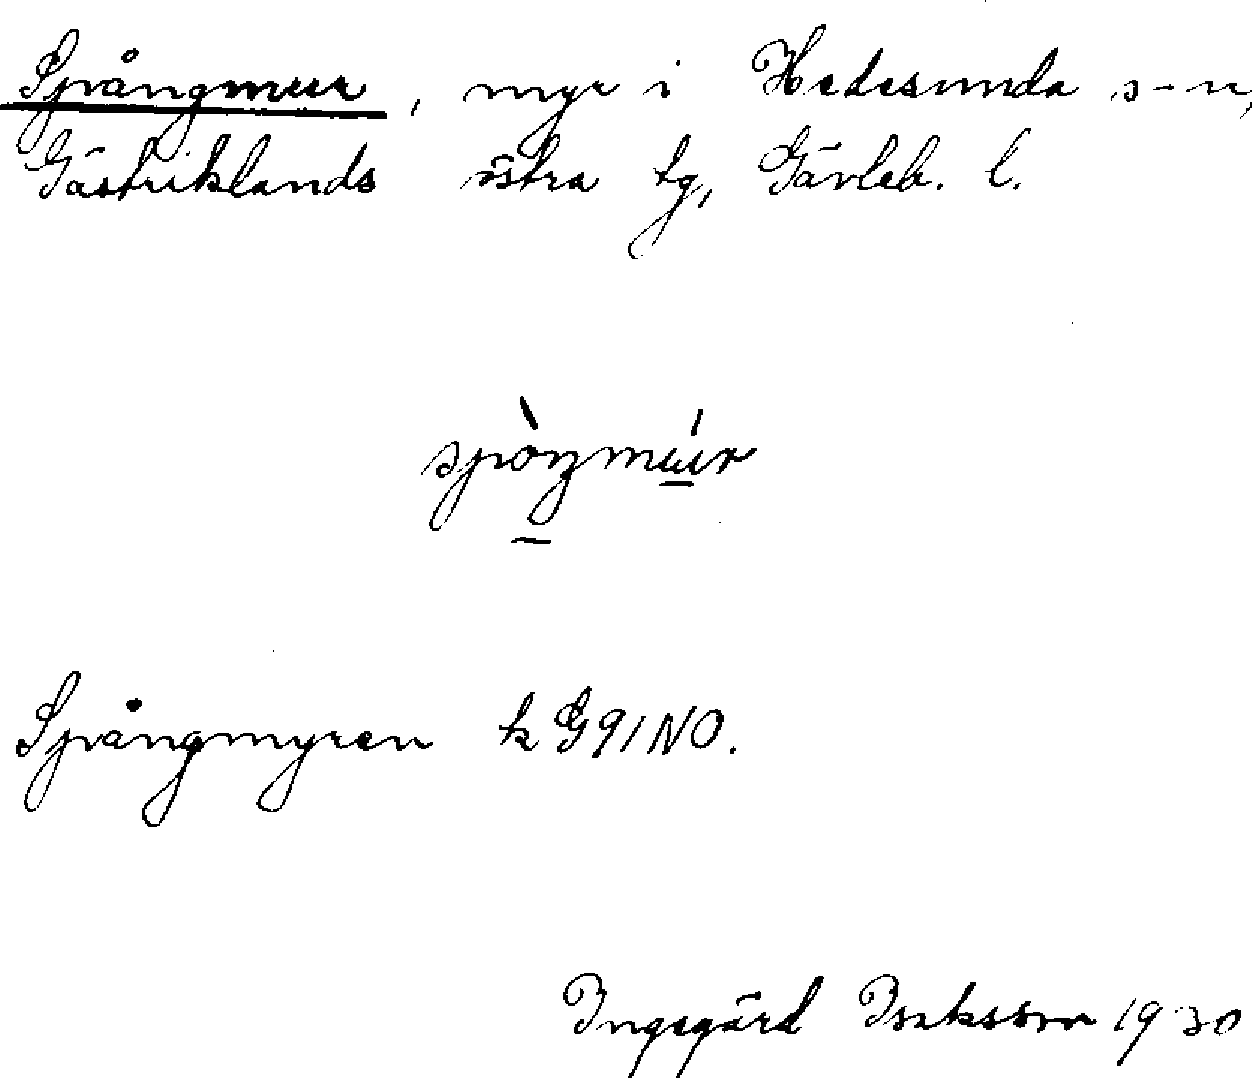 Spångmur, myr i Hedesunda s-n,
Gästriklands östra tg, Gävleb. l.
Spångmyren k G91NO.
Ingegärd Isaksson 1930